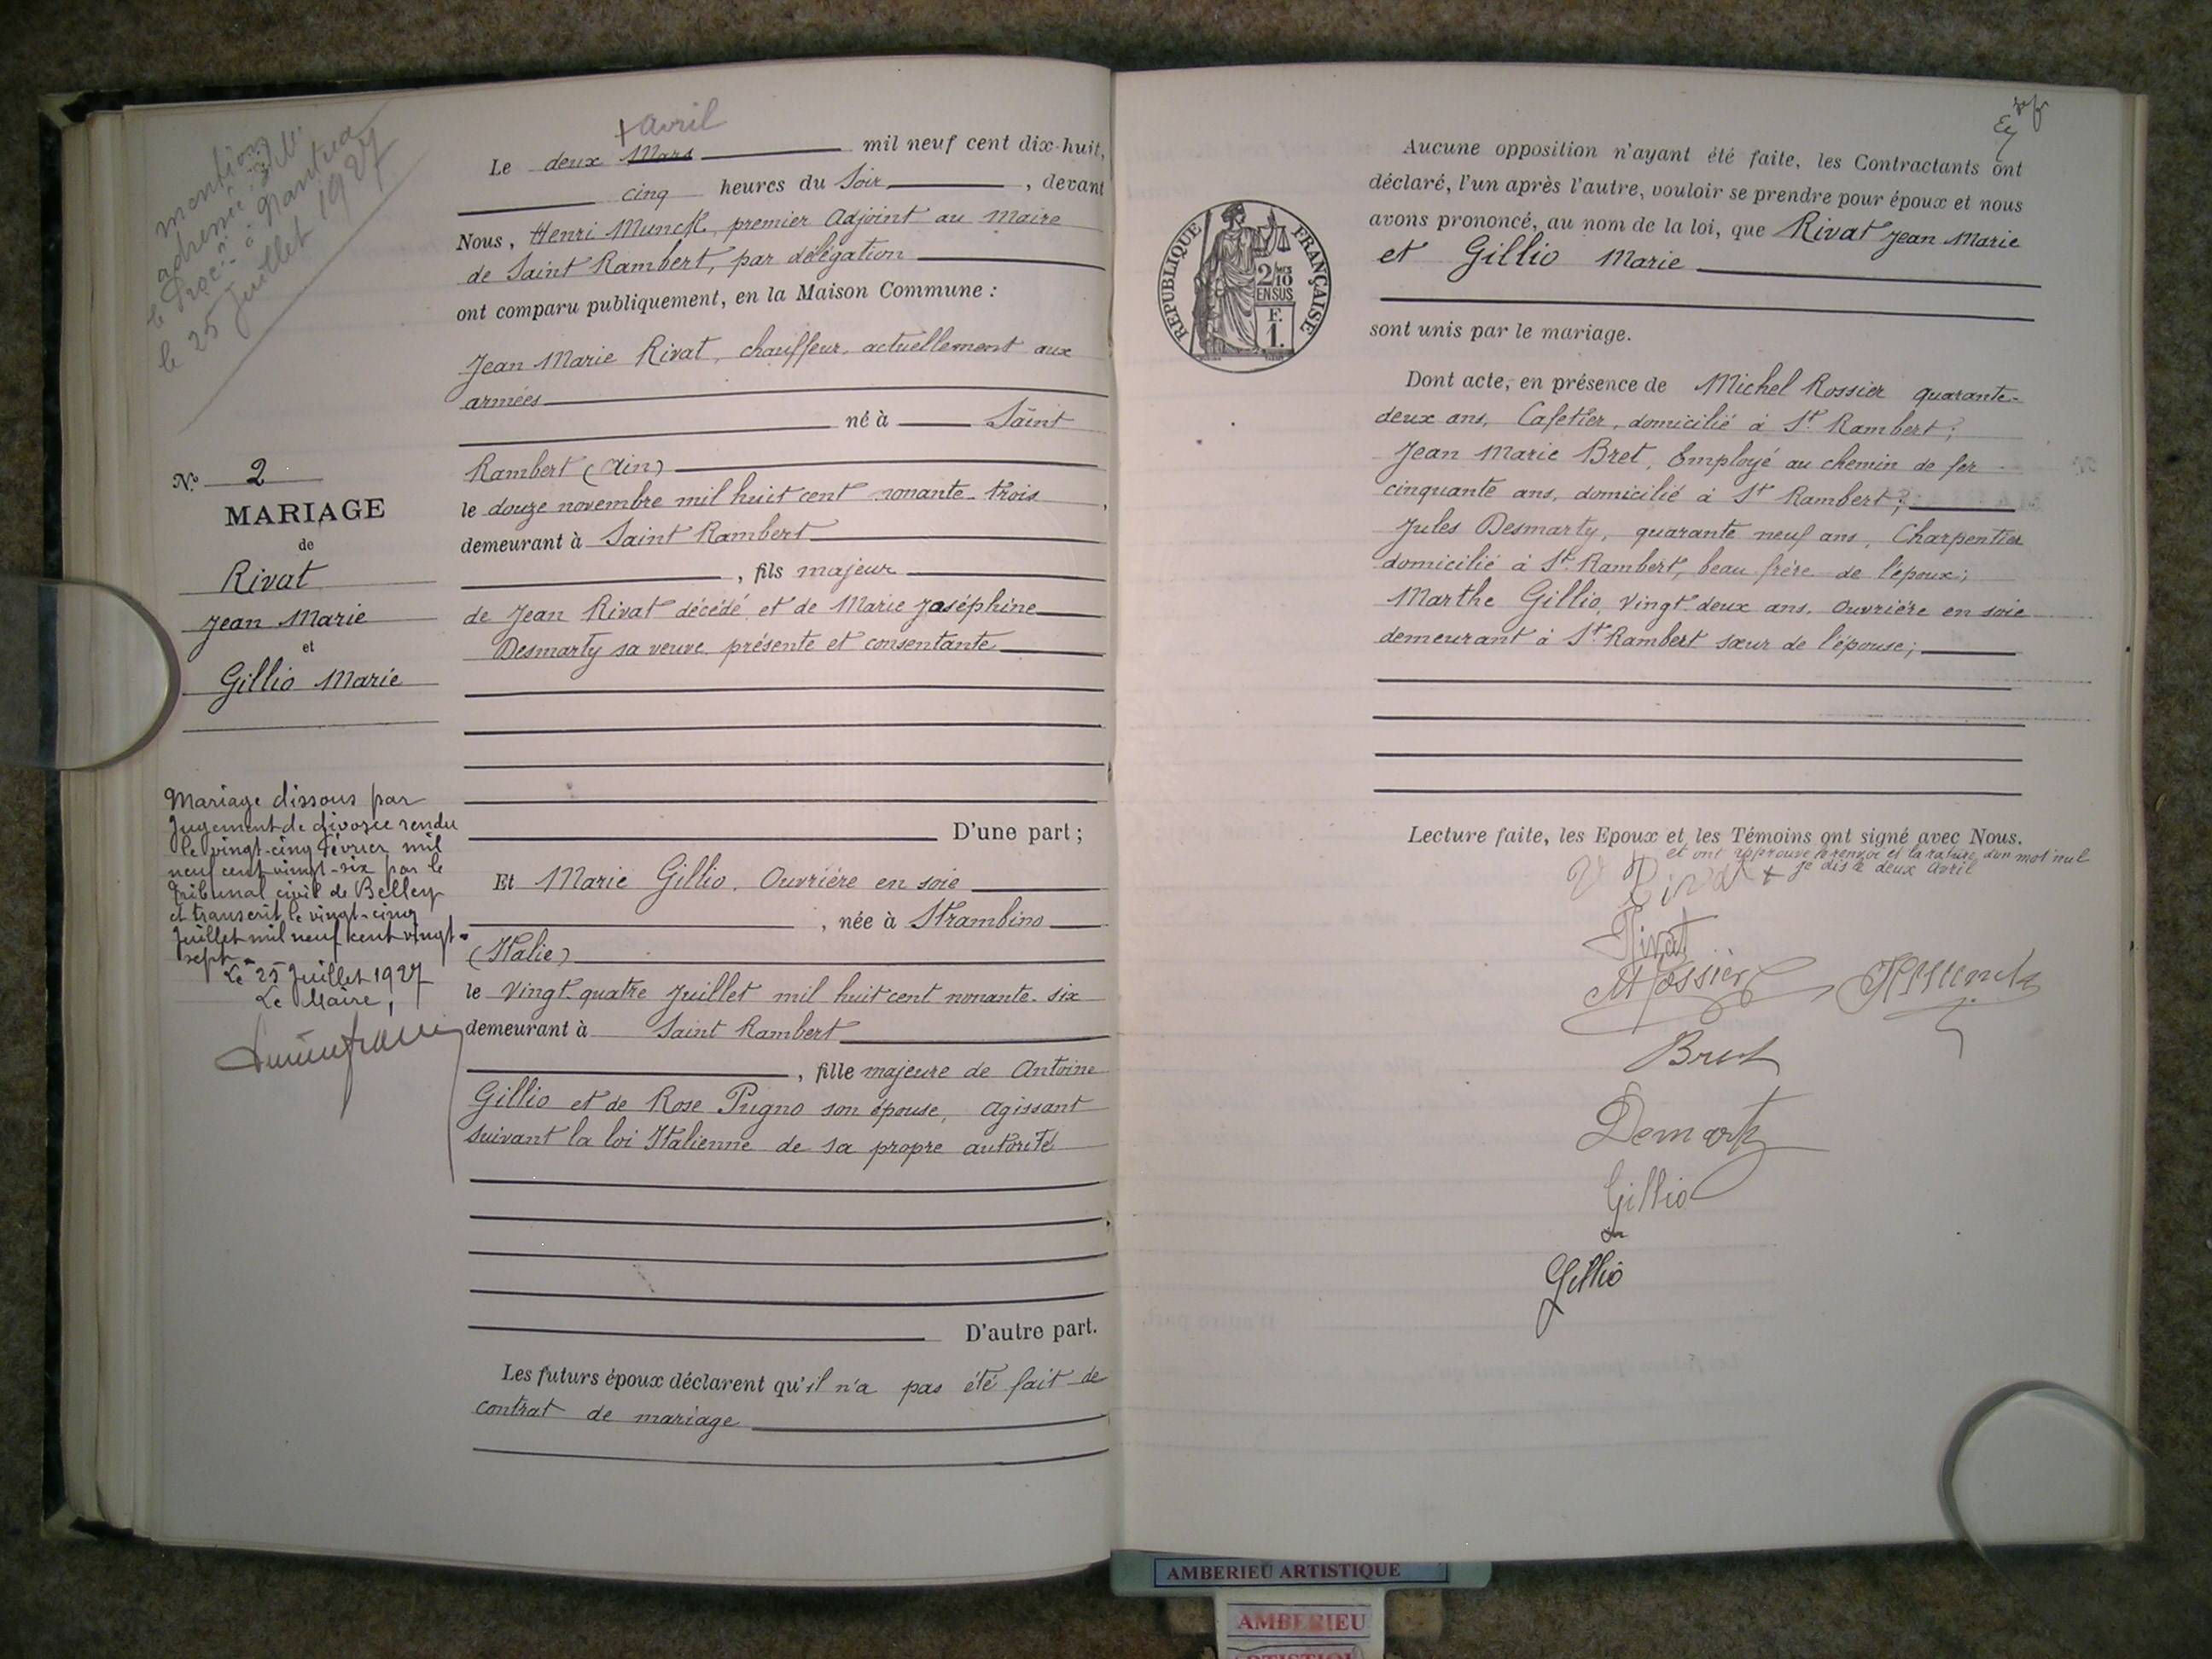 mention
adressée à M.
le Proc. à Nantua
le 25 Juillet 1927
N.º 2
MARIAGE
de
Rivat
Jean Marie
et
Gillio Marie
Mariage dissous par
Jugement de divorce rendu
le vingt-cinq Février mil
neuf cent vingt-six par le
Tribunal civil de Belley
et transcrit le vingt-cinq
Juillet mil neuf cent vingt-
sept.
Le 25 Juillet 1927
Le Maire,
+ Avril
Le deux Mars mil neuf cent dix-huit,
cinq heures du Soir, devant
Nous, Henri Munck, premier Adjoint au Maire
de Saint Rambert, par délégation
ont comparu publiquement, en la Maison Commune :
Jean Marie Rivat, chauffeur, actuellement aux
armées
né à Saint
Rambert (Ain)
le douze novembre mil huit cent nonante-trois,
demeurant à Saint Rambert
, fils majeur
de Jean Rivat décédé et de Marie Joséphine
Desmarty sa veuve présente et consentante
D'une part ;
Et Marie Gillio, Ouvrière en soie
, née à Strambino
(Italie)
le Vingt-quatre Juillet mil huit cent nonante-six
demeurant à Saint Rambert
, fille majeure de Antoine
Gillio et de Rose Prigno son épouse, agissant
suivant la loi Italienne de sa propre autorité
D'autre part.
Les futurs époux déclarent qu'il n'a pas été fait de
contrat de mariage
Aucune opposition n'ayant été faite, les Contractants ont
déclaré, l'un après l'autre, vouloir se prendre pour époux et nous
avons prononcé, au nom de la loi, que Rivat Jean Marie
et Gillio Marie
sont unis par le mariage.
REPUBLIQUE FRANÇAISE
2/10
EN SUS
F.
1.
Dont acte, en présence de Michel Rossier quarante-
deux ans, Cafetier, domicilié à St Rambert ;
Jean Marie Bret, Employé au chemin de fer
cinquante ans, domicilié à St Rambert ;
Jules Desmarty, quarante neuf ans, Charpentier
domicilié à St Rambert, beau frère de l'époux ;
Marthe Gillio, Vingt-deux ans, Ouvrière en soie
demeurant à St Rambert sœur de l'épouse ;
Lecture faite, les Epoux et les Témoins ont signé avec Nous.
et ont approuvé le renvoi et la rature d'un mot nul
+ je dis le deux Avril
Rivat
Rivat
M Rossier
HMunck
Bret
Demarty
Gillio
Gillio
AMBERIEU ARTISTIQUE
AMBERIEU
ARTISTIQU